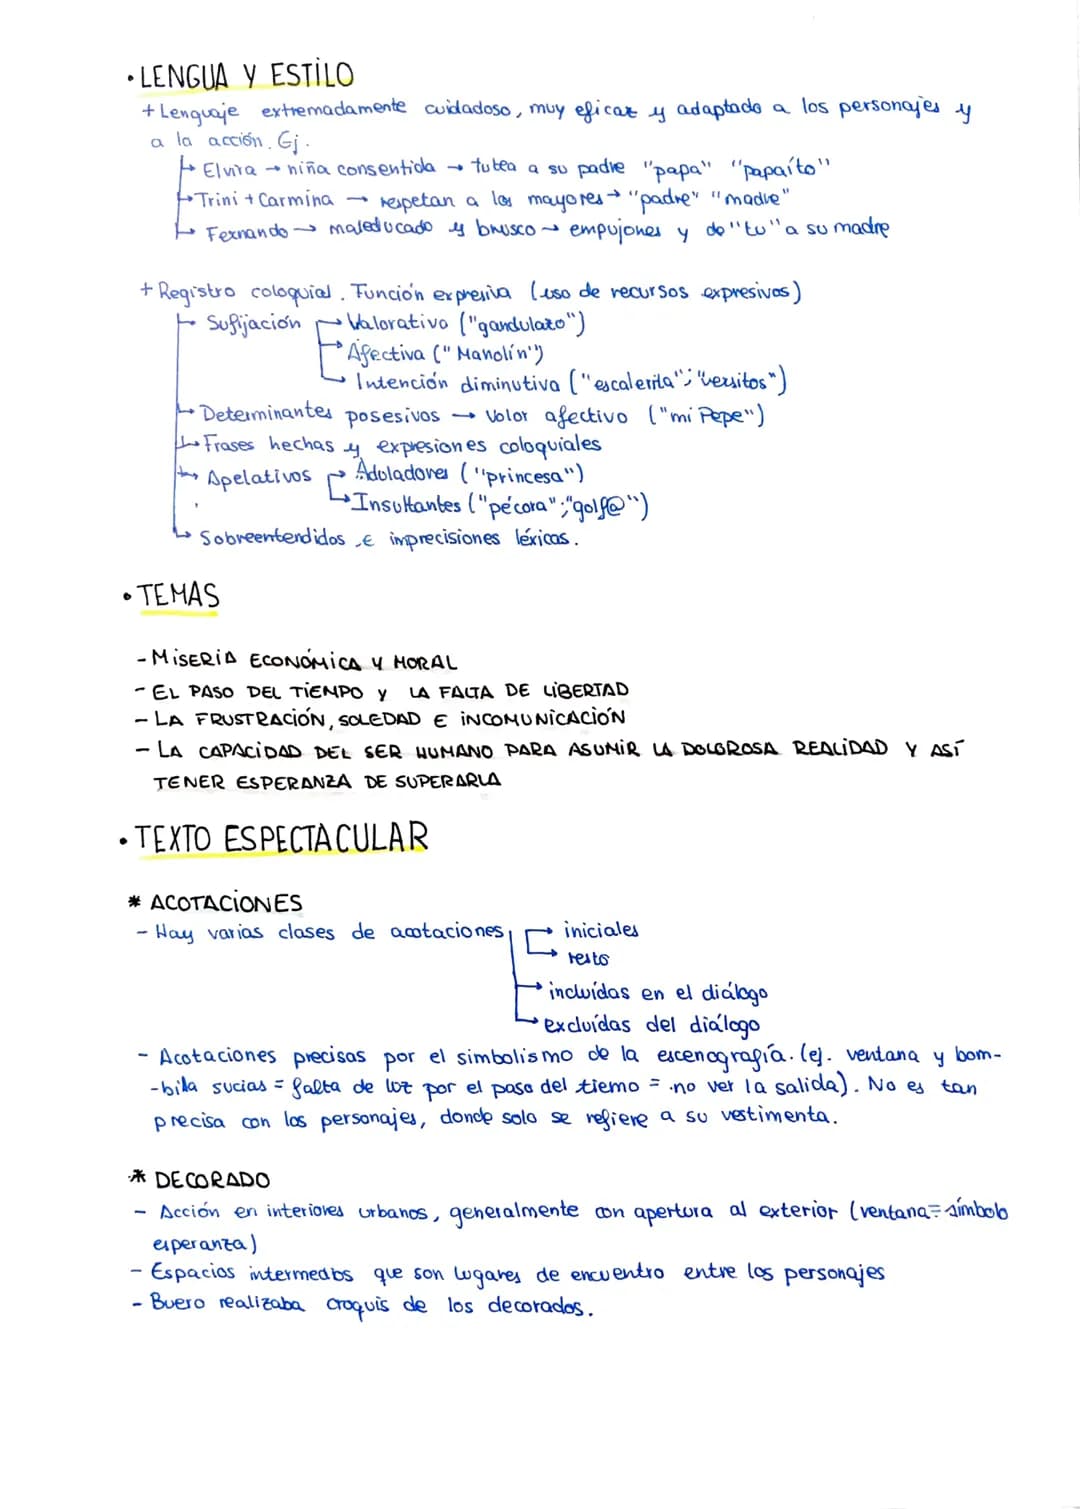 • LENGUA Y ESTILO
+ Lenguaje extremadamente cuidadoso, muy eficaz y adaptado a los personajes y
a la acción. Ej.
↳ Elvira → niña consentida → tutea a su padre "papa" "papaíto"
↳ Trini + Carmina → respetan a los mayores → "padre" "madre"
↳ Fernando → maleducado y brusco → empujones y de "tu" a su madre
+ Registro coloquial. Función expresiva (uso de recursos expresivos)
Sufijación → Valorativa ("gandulazo")
→ Afectiva ("Manolín")
→ Intención diminutiva ("escalerita"; "versitos")
→ Determinantes posesivos → Valor afectivo ("mi Pepe")
↳ Frases hechas y expresiones coloquiales
↳ Apelativos → Aduladores ("princesa")
↳ Insultantes ("pécora"; "golf@")
↳ Sobreentendidos e imprecisiones léxicas.
• TEMAS
- MISERIA ECONÓMICA Y MORAL
- EL PASO DEL TIEMPO Y LA FALTA DE LIBERTAD
- LA FRUSTRACIÓN, SOLEDAD E INCOMUNICACIÓN
- LA CAPACIDAD DEL SER HUMANO PARA ASUMIR LA DOLOROSA REALIDAD Y ASÍ
TENER ESPERANZA DE SUPERARLA
• TEXTO ESPECTACULAR
* ACOTACIONES
- Hay varias clases de acotaciones → iniciales
→ resto
→ incluídas en el diálogo
→ excluídas del diálogo
- Acotaciones precisas por el simbolismo de la escenografía. (ej. ventana y bom-
-billa sucias = falta de luz por el paso del tiemo = no ver la salida). No es tan
precisa con los personajes, donde solo se refiere a su vestimenta.
* DECORADO
- Acción en interiores urbanos, generalmente con apertura al exterior (ventana = símbolo
esperanza)
- Espacios intermedios que son lugares de encuentro entre los personajes
- Buero realizaba croquis de los decorados.